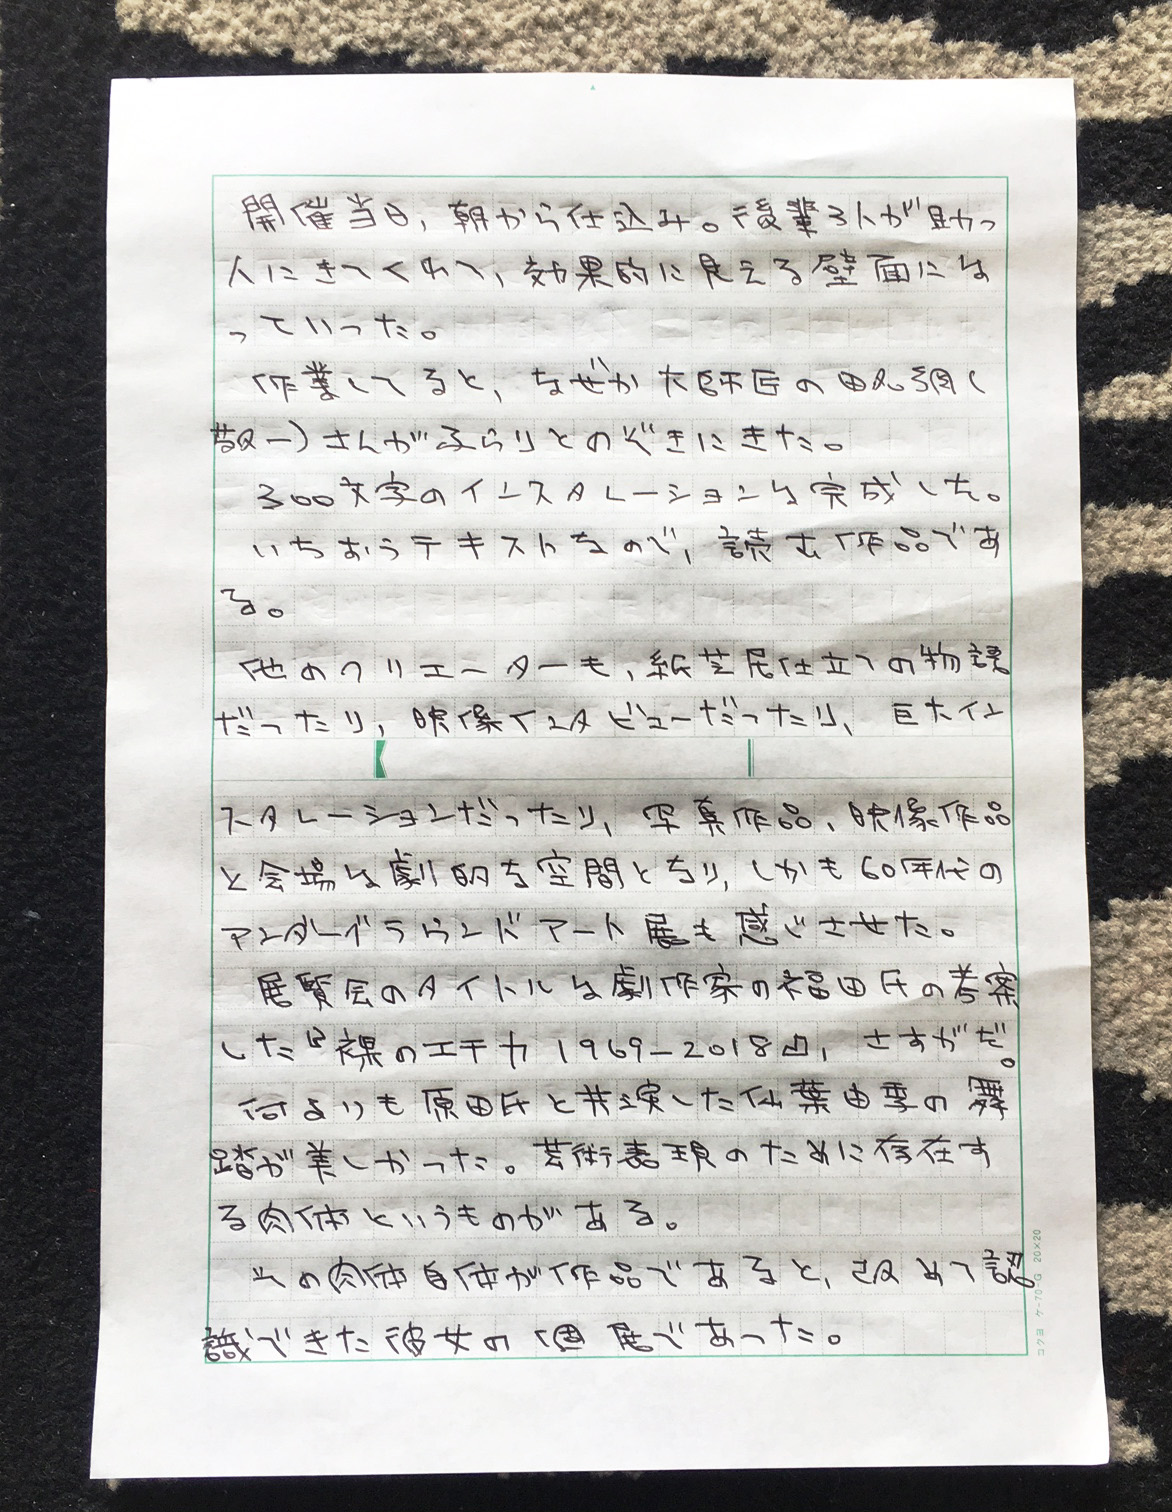 開催当日，朝から仕込み。後輩3人が助っ
人にきてくれて，効果的に見える壁面にな
っていった。
作業してると，なぜか大師匠の田名網(
敬一)さんがふらりとのぞきにきた。
300文字のインスタレーションは完成した。
いちおうテキストなので，読む作品であ
る。
他のクリエーターも，紙芝居仕立ての物語
だったり，映像インタビューだったり，巨大イン
スタレーションだったり，写真作品，映像作品
と会場は劇的な空間となり，しかも60年代の
アンダーグラウンドアート展も感じさせた。
展覧会のタイトルは劇作家の福田氏の考案
した『裸のエチカ 1969-2018』，さすがだ。
何よりも原田氏と共演した仙葉由季の舞
踏が美しかった。芸術表現のために存在す
る肉体というものがある。
その肉体自体が作品であると，改めて認
識できた彼女の個展であった。
コクヨ ケ-70-G 20×20